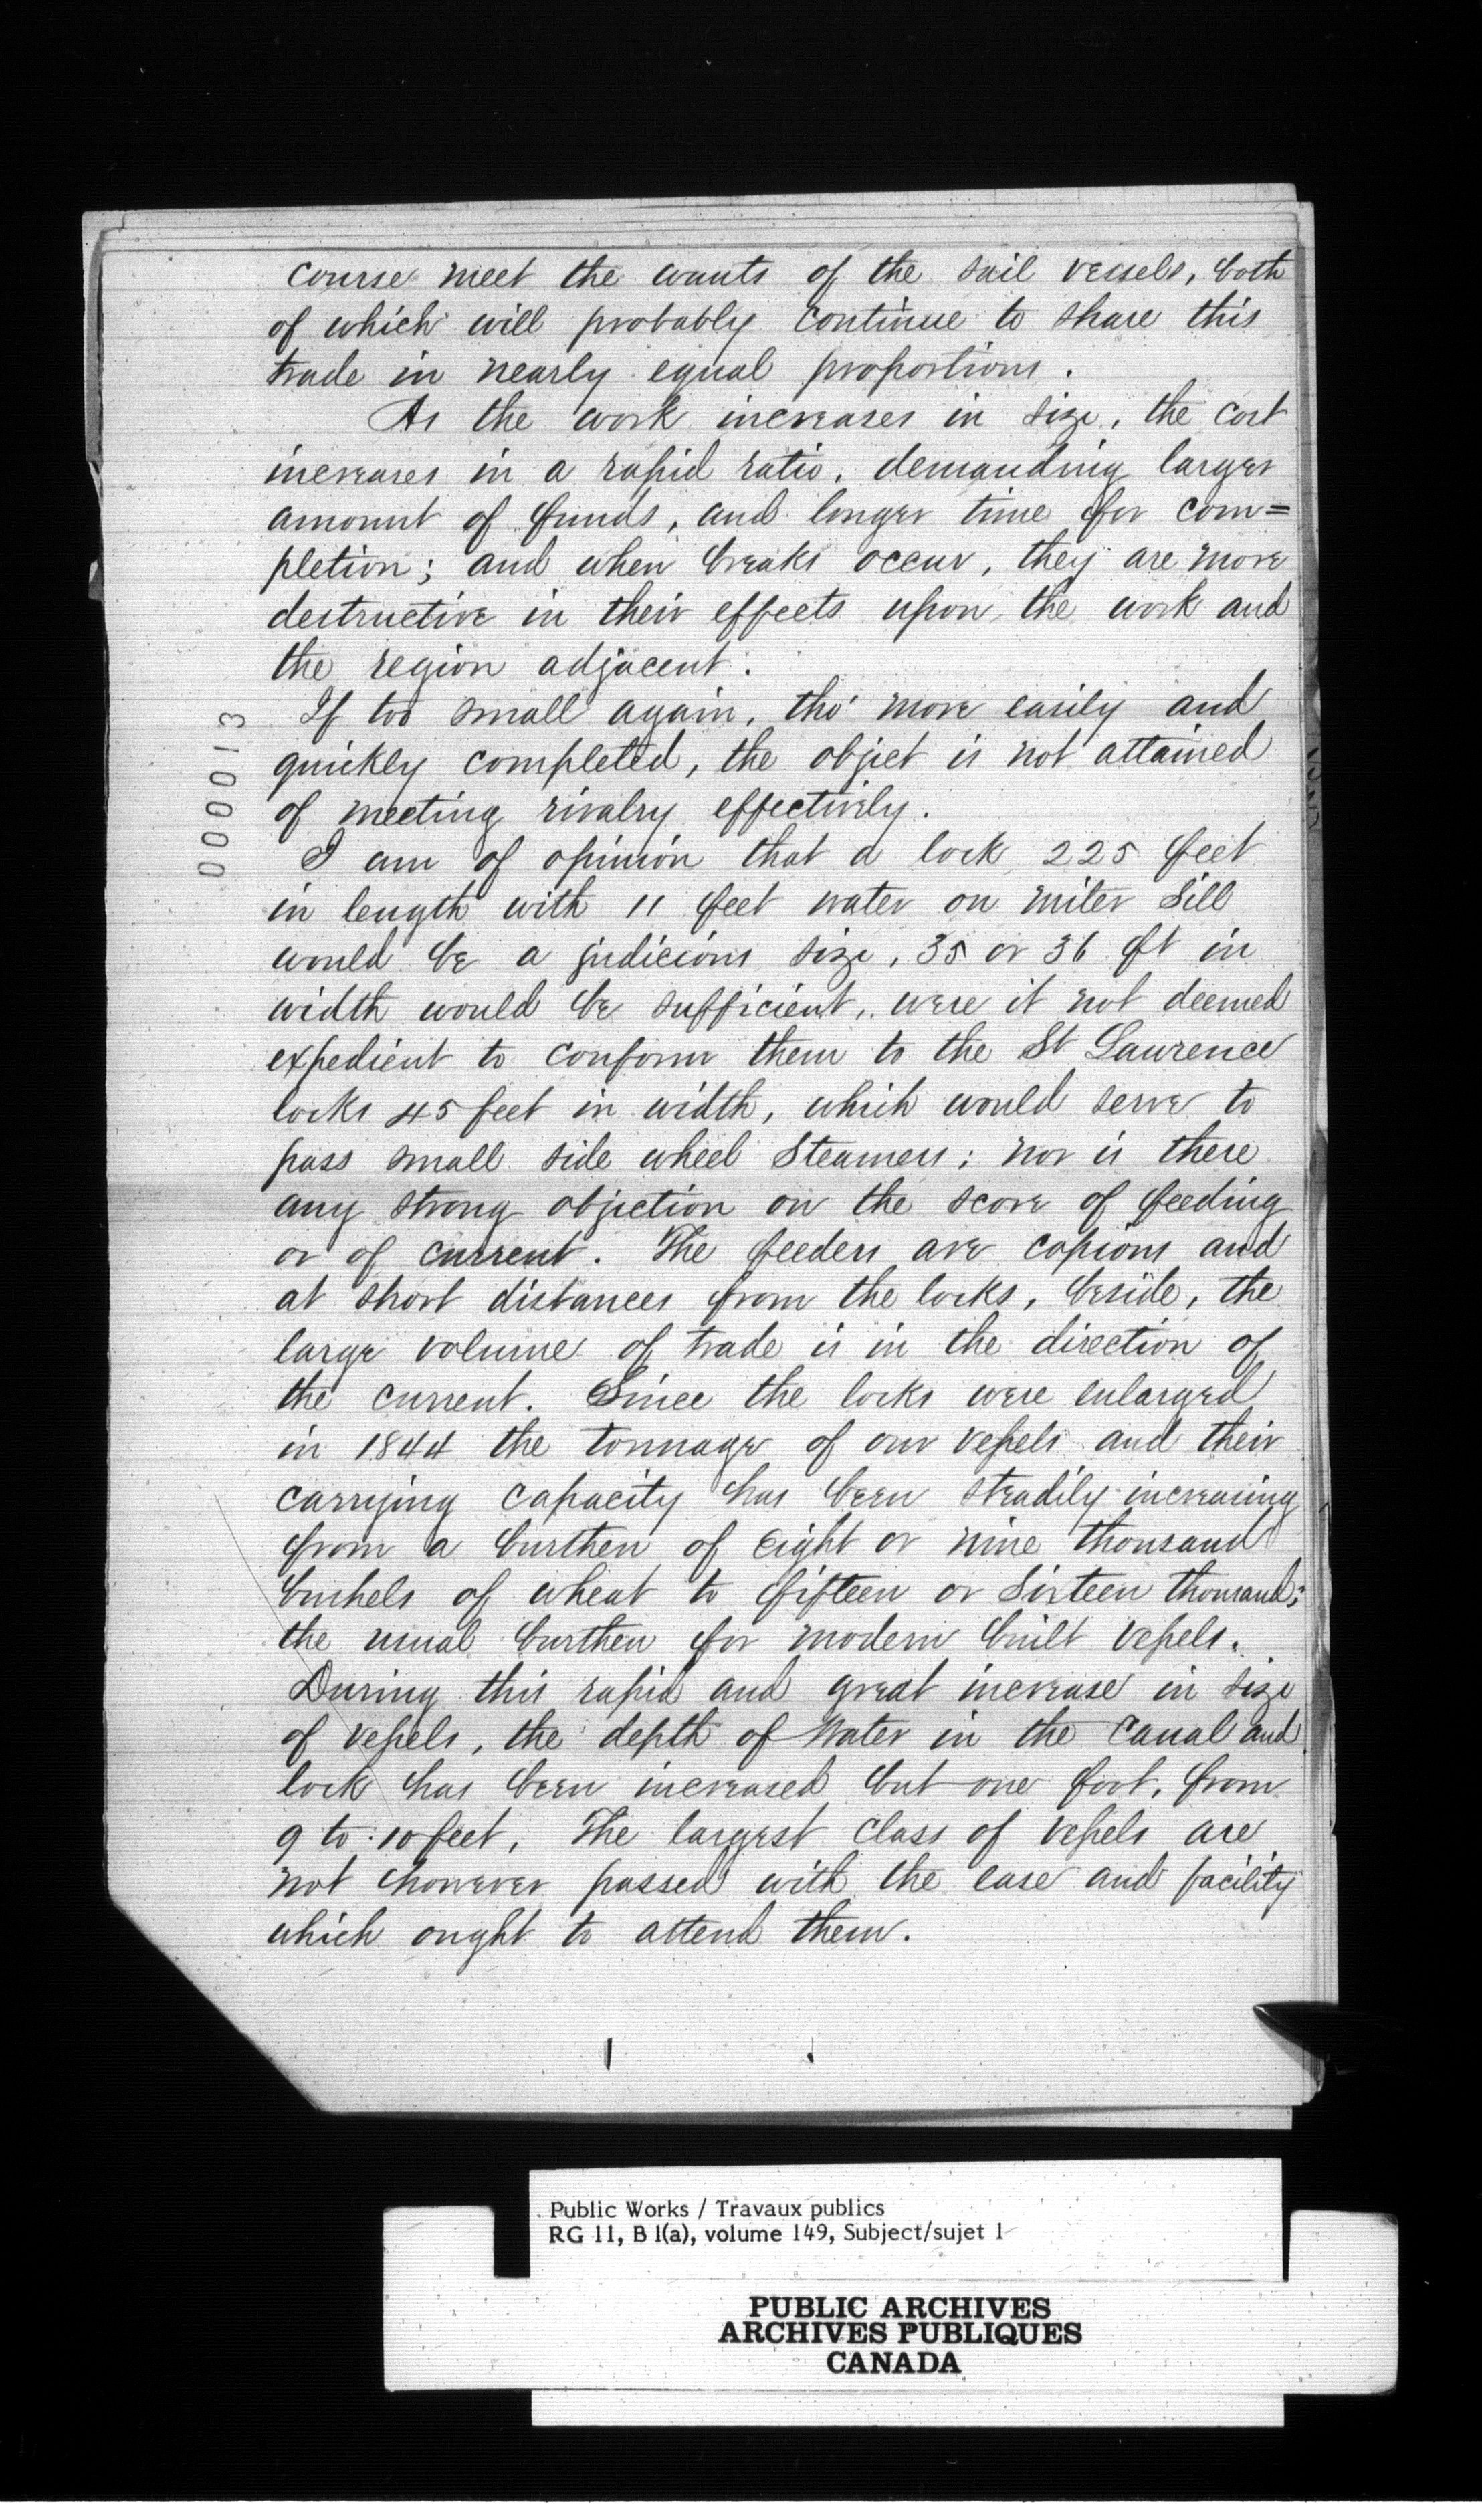 course meet the wants of the sail vessels, both
of which will probably continue to share this
trade in nearly equal proportions.
As the work increases in size, the cost
increases in a rapid ratio, demanding larger
amount of funds, and longer time for com=
pletion; and when breaks occur, they are more
destructive in their effects upon the work and
the region adjacent.
If too small again, tho' more easily and
quickly completed, the object is not attained
of meeting rivalry effectively.
I am of opinion that a lock 225 feet
in length with 11 feet water on miter sill
would be a judicious size, 35 or 36 ft in
width would be sufficient, were it not deemed
expedient to conform them to the St Lawrence
locks 45 feet in width, which would serve to
pass small side wheel steamers; nor is there
any strong objection on the score of feeding
or of current. The feeders are copious and
at short distances from the locks, beside, the
large volume of trade is in the direction of
the current. Since the locks were enlarged
in 1844 the tonnage of our vessels and their
carrying capacity has been steadily increasing
from a burthen of eight or nine thousand
bushels of wheat to fifteen or sixteen thousand;
the usual burthen for modern built vessels.
During this rapid and great increase in size
of vessels, the depth of water in the canal and
lock has been increased but one foot, from
9 to 10 feet. The largest class of vessels are
not however passed with the ease and facility
which ought to attend them.
000013
Public Works / Travaux publics
RG 11, B 1(a), volume 149, Subject/sujet 1
PUBLIC ARCHIVES
ARCHIVES PUBLIQUES
CANADA